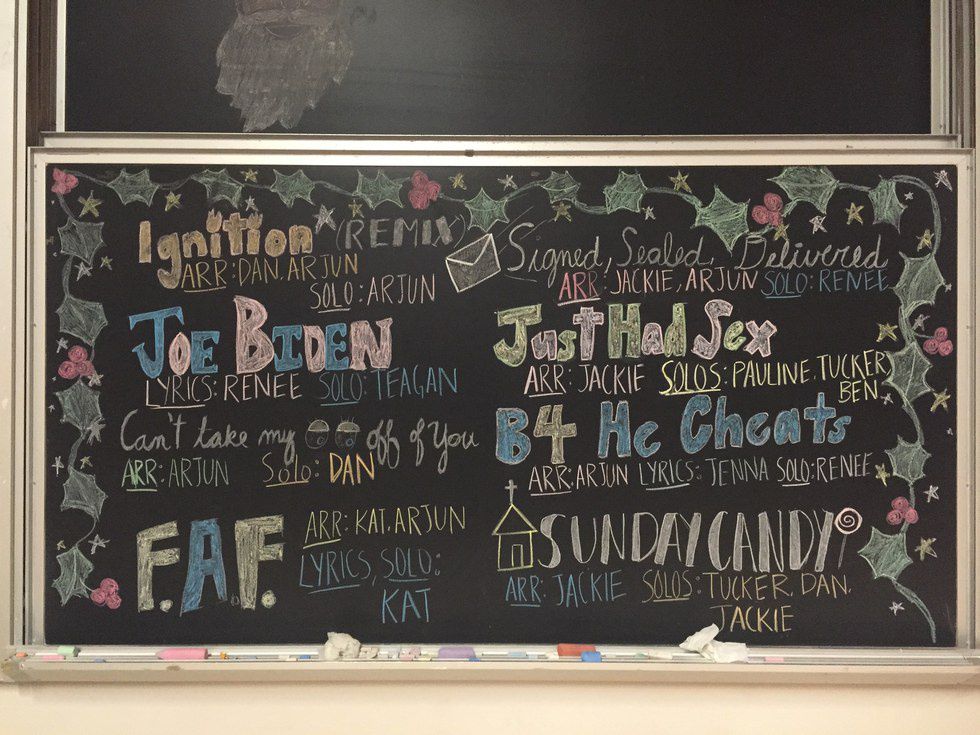 Ignition (REMIX)
ARR: DAN, ARJUN
SOLO: ARJUN
JOE BIDEN
LYRICS: RENEE SOLO: TEAGAN
Can't take my off of You
ARR: ARJUN Solo: DAN
F.A.F.
ARR: KAT, ARJUN
LYRICS, SOLO:
KAT
Signed, Sealed, Delivered
ARR: JACKIE, ARJUN SOLO: RENEE
Just Had Sex
ARR: JACKIE SOLOS: PAULINE, TUCKER,
BEN
B4 He Cheats
ARR: ARJUN LYRICS: JENNA SOLO: RENEE
SUNDAY CANDY
ARR: JACKIE SOLOS: TUCKER, DAN,
JACKIE